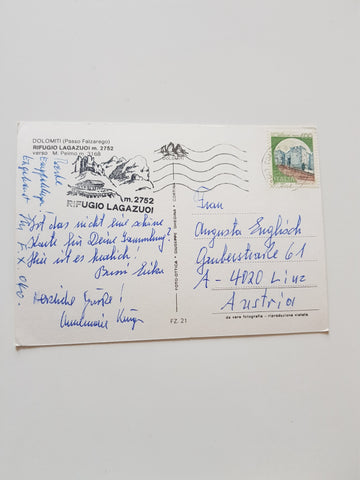 DOLOMITI (Passo Falzarego)
RIFUGIO LAGAZUOI m. 2752
verso M. Pelmo m. 3168
DOLOMITI
m. 2752
RIFUGIO LAGAZUOI
Ist das nicht eine schöne
Karte für Deine Sammlung?
Hier ist es herrlich!
Bussi Erika
Herzliche Grüße!
Annemarie
FOTO-OTTICA • GIUSEPPE GHEDINA • CORTINA
FZ. 21
Frau
Augusta Englisch
Gruberstraße 61
A - 4020 Linz
Austria
da vera fotografia - riproduzione vietata